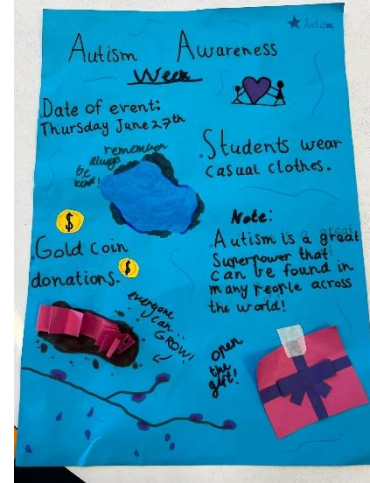 ★ Autism
Autism Awareness
Week
Date of event:
Thursday June 27th
remember
always
be
kind!
Students wear
casual clothes.
$
Gold coin
donations.
$
Note:
Autism is a great
Superpower that
can be found in
many people across
the world!
everyone
can
GROW!
open
the
gift!